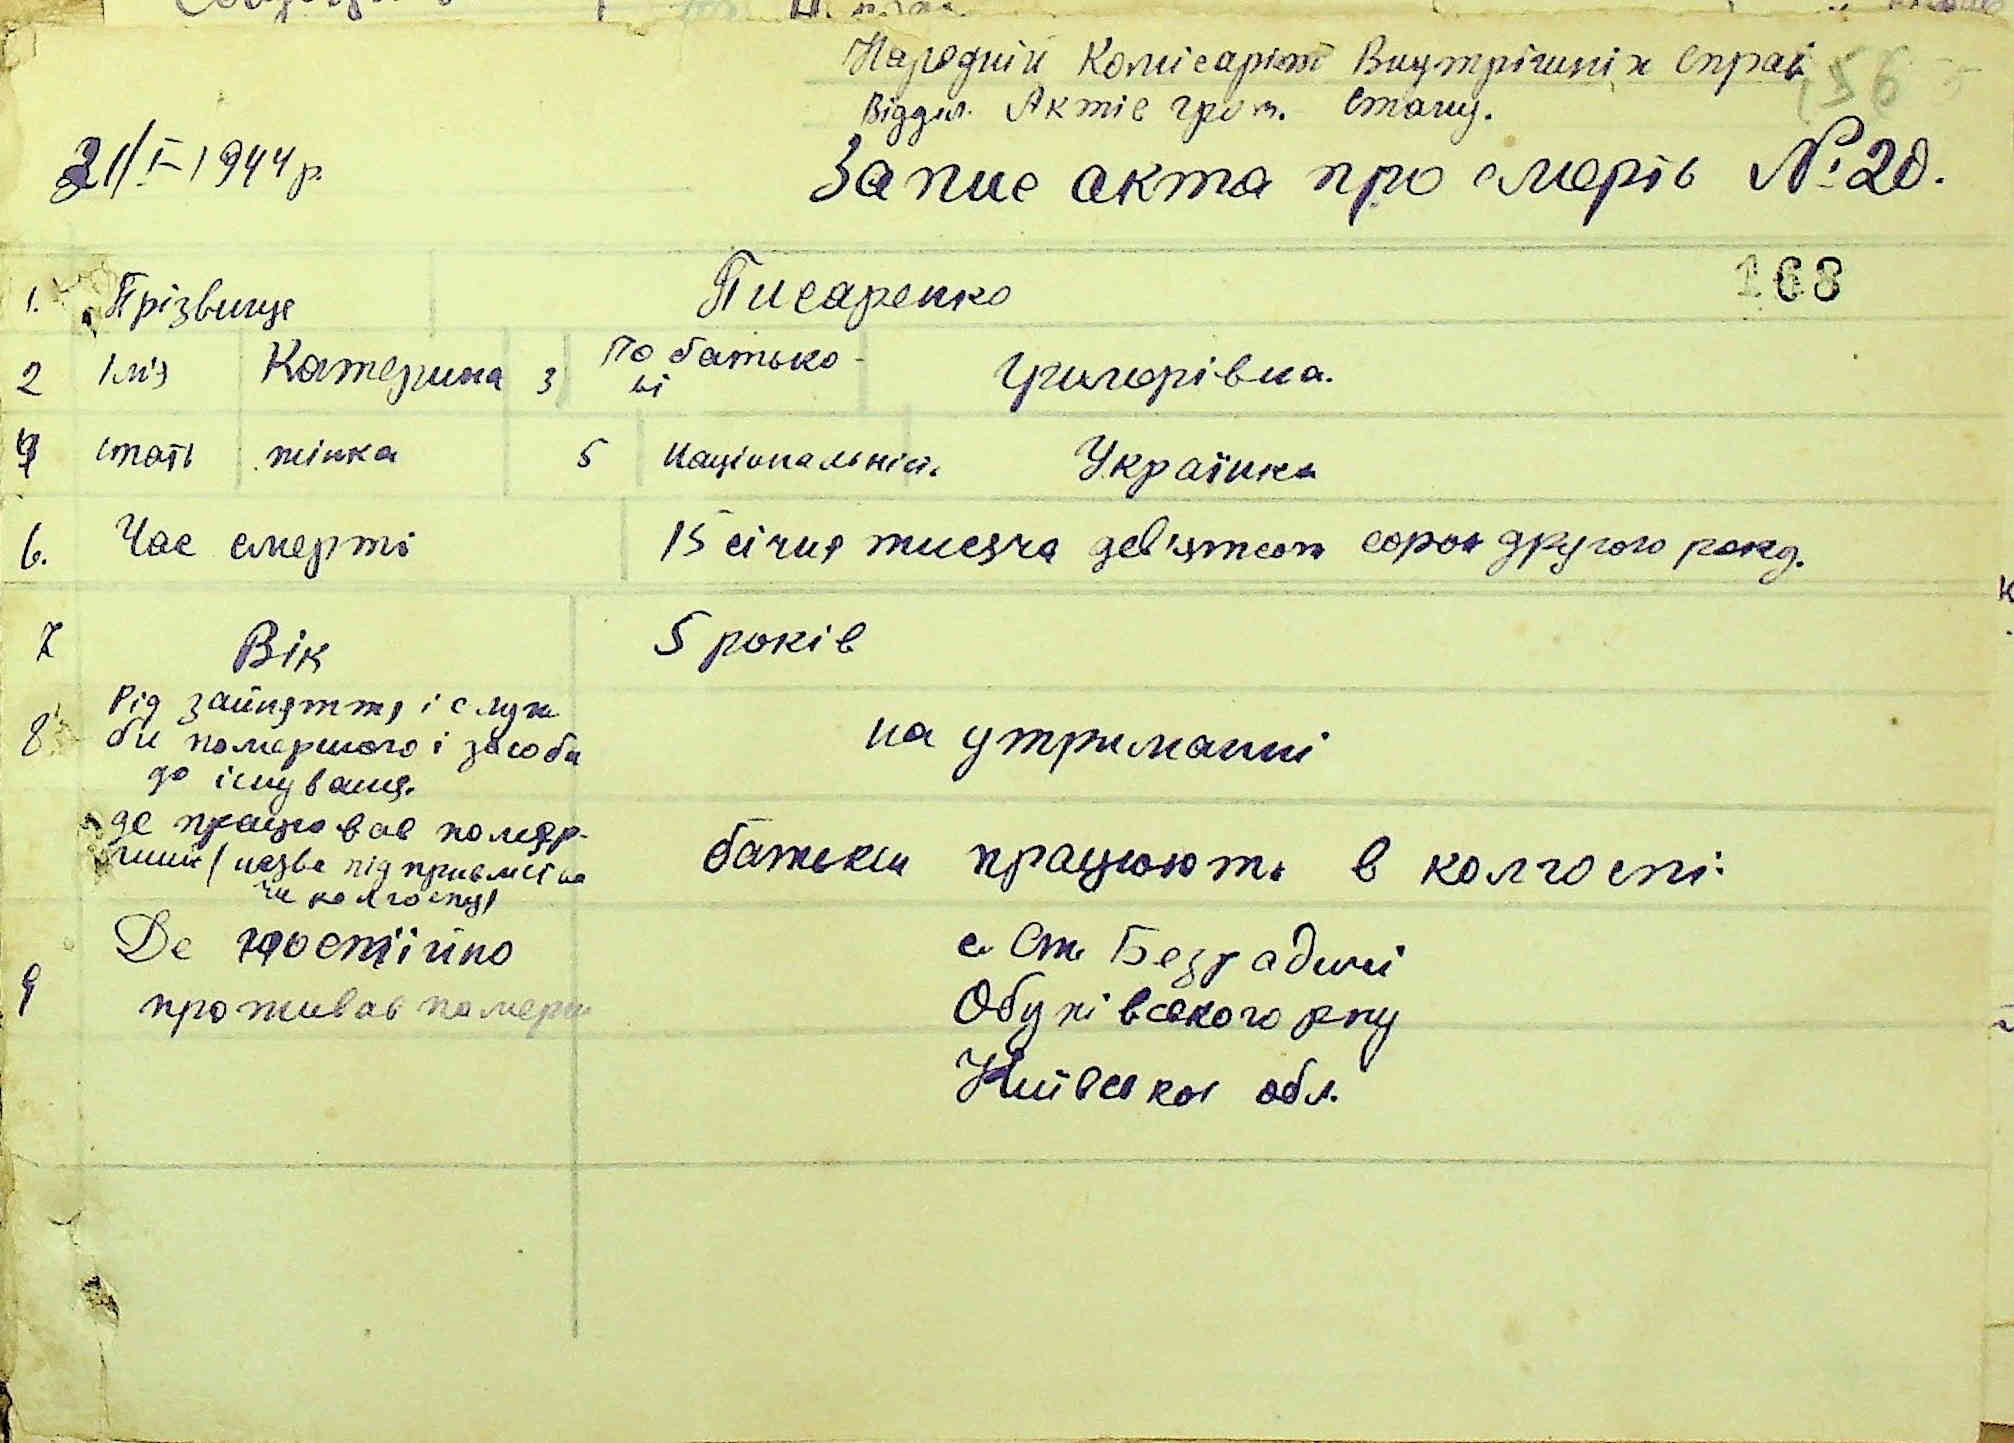 Народній Комісаріят Внутрішніх Справ
Відділ. Актів гром. Стану.
21/I-1944р.
Запис акта про смерть №20.
168
1. Прізвище Писаренко
2 Ім'я Катерина 3 По батько-
ві Григорівна.
4 Стать жінка 5 Національніст. Українка
6. Час смерті 15 січня тисяча дев'ятсот сорок другого року.
7 Вік 5 років
8 Рід зайняття і служ
би помершого і засоби
до існування. на утриманні
де працював помер-
ший (назва підприємства
чи колгоспу) батьки працюють в колгоспі.
9 Де постійно
проживав помери
с. Ст. Безрадичі
Обухівського рну
Київської обл.